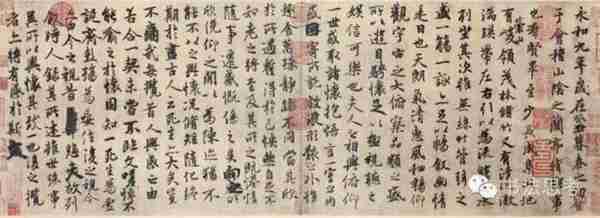 永和九年歲在癸丑暮春之初會
于會稽山陰之蘭亭脩稧事
也羣賢畢至少長咸集此地
有崇山峻領茂林脩竹又有清流激
湍暎帶左右引以為流觴曲水
列坐其次雖無絲竹管弦之
盛一觴一詠亦足以暢敘幽情
是日也天朗氣清惠風和暢仰
觀宇宙之大俯察品類之盛
所以遊目騁懷足以極視聽之
娛信可樂也夫人之相與俯仰
一世或取諸懷抱悟言一室之內
或因寄所託放浪形骸之外雖
趣舍萬殊靜躁不同當其欣
於所遇蹔得於己怏然自足不
知老之將至及其所之既惓情
隨事遷感慨係之矣向之所
欣俛仰之閒以為陳迹猶不
能不以之興懷況脩短隨化終
期於盡古人云死生亦大矣豈
不痛哉每攬昔人興感之由
若合一契未嘗不臨文嗟悼不
能喻之於懷固知一死生為虛
誕齊彭殤為妄作後之視今
亦由今之視昔悲夫故列
敘時人錄其所述雖世殊事
異所以興懷其致一也後之攬
者亦將有感於斯文
书法思考